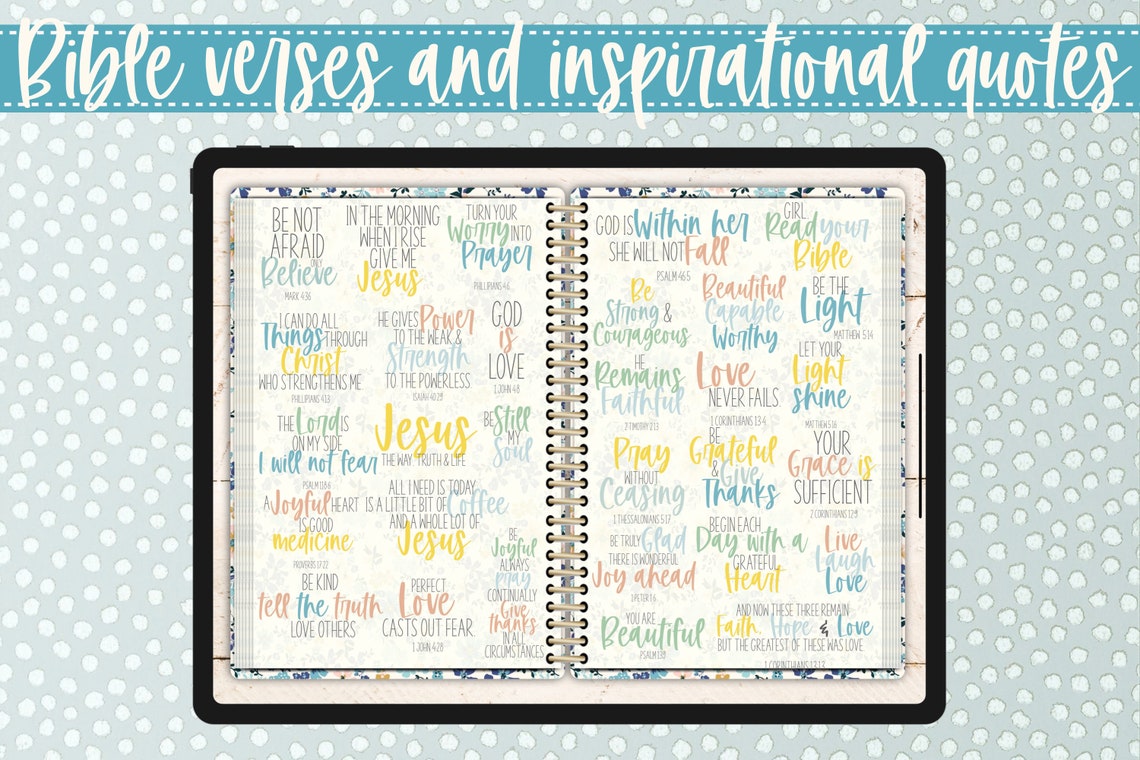 Bible verses and inspirational quotes
BE NOT
AFRAID
ONLY
Believe
MARK 4:36
IN THE MORNING
WHEN I RISE
GIVE ME
Jesus
TURN YOUR
Worry INTO
Prayer
PHILLIPIANS 4:6
I CAN DO ALL
Things THROUGH
Christ
WHO STRENGTHENS ME
PHILLIPIANS 4:13
HE GIVES Power
TO THE WEAK &
Strength
TO THE POWERLESS
ISAIAH 40:29
GOD
is
LOVE
1 JOHN 4:8
THE Lord IS
ON MY SIDE
I will not fear
PSALM 118:6
Jesus
THE WAY, TRUTH & LIFE
BE Still
MY
Soul
A Joyful HEART
IS GOOD
medicine
PROVERBS 17:22
ALL I NEED IS TODAY
IS A LITTLE BIT OF Coffee
AND A WHOLE LOT OF
Jesus
BE
Joyful
ALWAYS
pray
CONTINUALLY
Give
thanks
IN ALL
CIRCUMSTANCES
BE KIND
tell the truth
LOVE OTHERS
PERFECT
Love
CASTS OUT FEAR.
1 JOHN 4:28
GOD IS Within her
SHE WILL NOT Fall
PSALM 46:5
GIRL
Read your
Bible
Be
Strong &
Courageous
Beautiful
Capable
Worthy
BE THE
Light
MATTHEW 5:14
HE
Remains
Faithful
2 TIMOTHY 2:13
Love
NEVER FAILS
1 CORINTHIANS 13:4
LET YOUR
Light
shine
MATTHEW 5:16
Pray
WITHOUT
Ceasing
1 THESSALONIANS 5:17
BE
Grateful
& Give
Thanks
YOUR
Grace is
SUFFICIENT
2 CORINTHIANS 12:9
BE TRULY Glad
THERE IS WONDERFUL
Joy ahead
1 PETER 1:6
BEGIN EACH
Day with a
GRATEFUL
Heart
Live
Laugh
Love
YOU ARE
Beautiful
PSALM 139
AND NOW THESE THREE REMAIN
Faith, Hope & Love
BUT THE GREATEST OF THESE WAS LOVE
1 CORINTHIANS 13:13